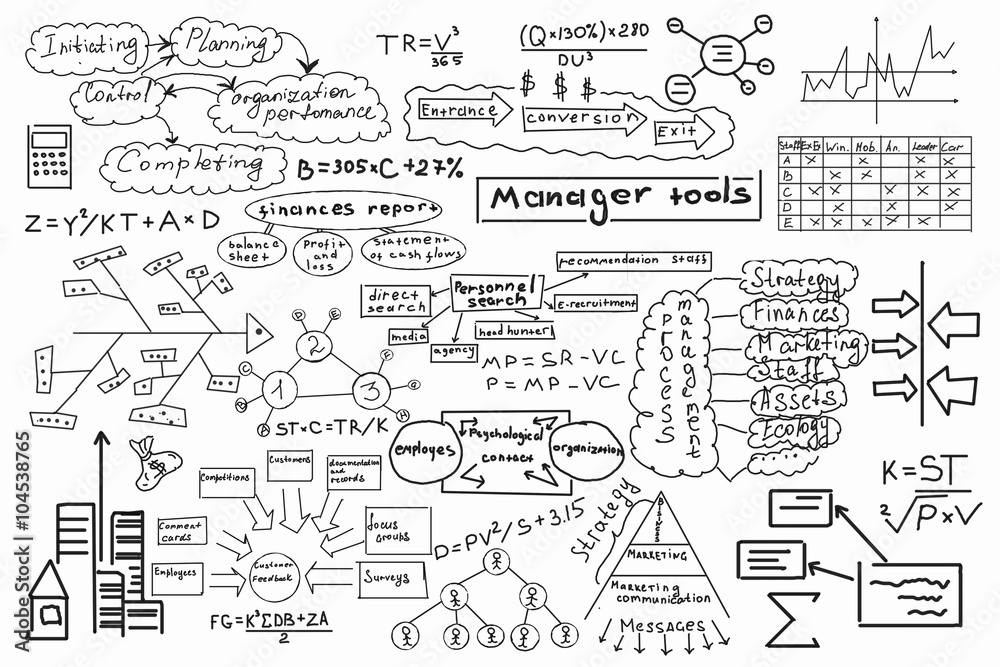 Initiating
Planning
Control
organization
perfomance
Completing
TR=V³/365
(Q×130%)×280
DU³
$ $ $
Entrance
conversion
Exit
B=305×C+27%
Manager tools
Staff Win. Mob. An. Leader Car
A × × ×
B × × × ×
C × × × × ×
D × × ×
E × × × × ×
Z=Y²/KT+A×D
finances report
balance
sheet
Profit
and
loss
statement
of cash flows
recommendation staff
Personnel
search
direct
search
E-recruitment
media
head hunter
agency
MP=SR-VC
P=MP-VC
process
management
Strategy
Finances
Marketing
Staff
Assets
Ecology
1
2
3
ST×C=TR/K
employes
Psychological
contact
organization
K=ST
²√P×V
$
Competitions
Customers
documentation
and
records
Comment
cards
focus
groups
Employees
Customer
Feedback
Surveys
FG=K³ΣDB+ZA
2
D=PV²/S+3.15
Strategy
MARKETING
Marketing
communication
Messages
Adobe Stock
#104538765